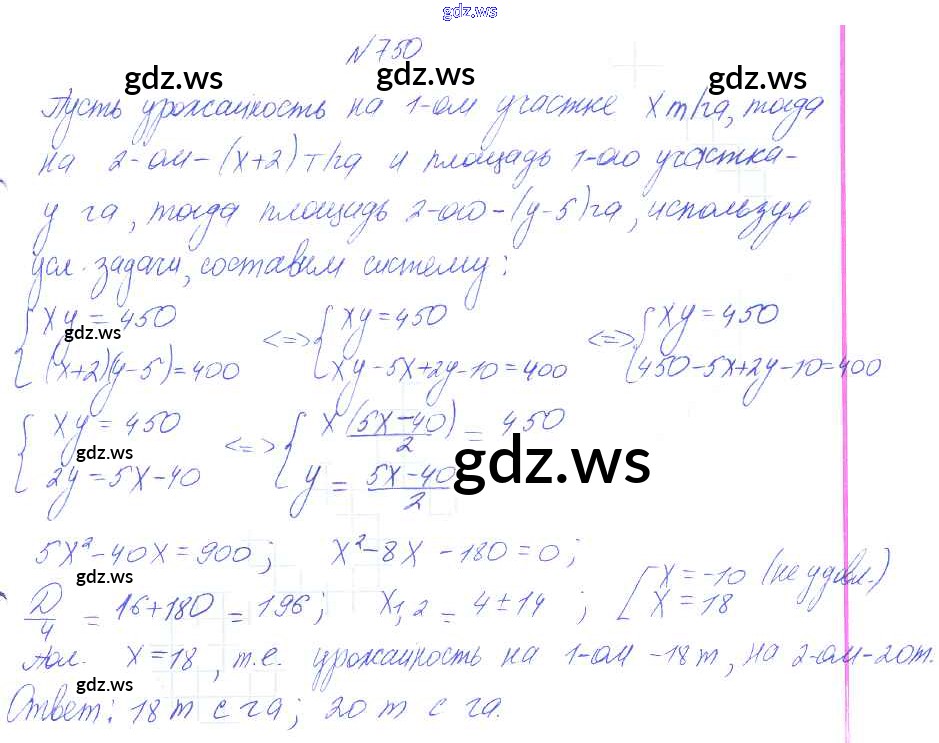 gdz.ws
N 750
gdz.ws gdz.ws
Пусть урожайность на 1-ом участке x т/га, тогда
на 2-ом - (x+2) т/га и площадь 1-ого участка -
y га, тогда площадь 2-ого - (y-5) га, используя
усл. задачи, составим систему:
{ xy = 450 <=> { xy = 450 <=> { xy = 450
gdz.ws
(x+2)(y-5) = 400 xy - 5x + 2y - 10 = 400 450 - 5x + 2y - 10 = 400
{ xy = 450 <=> { x(5x-40)/2 = 450
gdz.ws gdz.ws
2y = 5x - 40 y = (5x-40)/2
5x² - 40x = 900; x² - 8x - 180 = 0;
gdz.ws
D/4 = 16+180 = 196; x1,2 = 4 ± 14; [ x = -10 (не удовл.) x = 18
x = 18, т.е. урожайность на 1-ом - 18т, на 2-ом - 20т.
gdz.ws
Ответ: 18 т с га; 20 т с га.